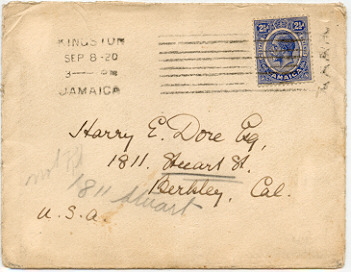 KINGSTON
SEP 8-20
3— PM
JAMAICA
2½ 2½
JAMAICA
Harry E. Dore Esq,
1811. Stuart St.
Berkley, Cal.
U.S.a.
not
1811 Stuart